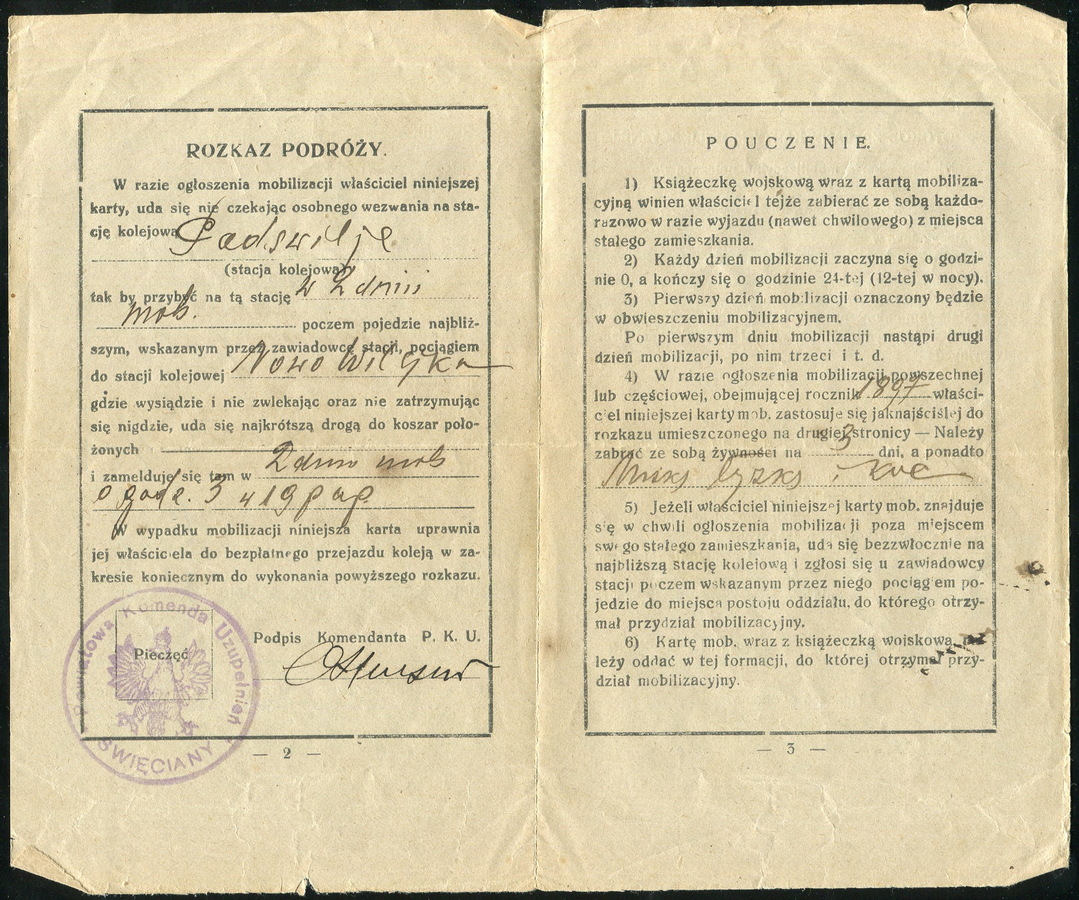 ROZKAZ PODRÓŻY.
W razie ogłoszenia mobilizacji właściciel niniejszej
karty, uda się nie czekając osobnego wezwania na sta-
cję kolejową Podswilje
(stacja kolejowa)
tak by przybyć na tą stację w 2 dniu
mob.
poczem pojedzie najbliż-
szym, wskazanym przez zawiadowcę stacji, pociągiem
do stacji kolejowej Nowo Wilejka
gdzie wysiądzie i nie zwlekając oraz nie zatrzymując
się nigdzie, uda się najkrótszą drogą do koszar poło-
żonych
i zamelduje się tam w 2 dniu mob
o godz. 3 w 19 p a p.
W wypadku mobilizacji niniejsza karta uprawnia
jej właściciela do bezpłatnego przejazdu koleją w za-
kresie koniecznym do wykonania powyższego rozkazu.
Podpis Komendanta P. K. U.
Pieczęć
Powiatowa Komenda Uzupełnień
ŚWIĘCIANY
— 2 —
POUCZENIE.
1) Książeczkę wojskową wraz z kartą mobiliza-
cyjną winien właściciel tejże zabierać ze sobą każdo-
razowo w razie wyjazdu (nawet chwilowego) z miejsca
stałego zamieszkania.
2) Każdy dzień mobilizacji zaczyna się o godzi-
nie 0, a kończy się o godzinie 24-tej (12-tej w nocy).
3) Pierwszy dzień mobilizacji oznaczony będzie
w obwieszczeniu mobilizacyjnem.
Po pierwszym dniu mobilizacji nastąpi drugi
dzień mobilizacji, po nim trzeci i t. d.
4) W razie ogłoszenia mobilizacji powszechnej
lub częściowej, obejmującej rocznik 1897 właści-
ciel niniejszej karty mob. zastosuje się jaknajściślej do
rozkazu umieszczonego na drugiej stronicy — Należy
zabrać ze sobą żywności na 3 dni, a ponadto
łyzkę i koc
5) Jeżeli właściciel niniejszej karty mob. znajduje
się w chwili ogłoszenia mobilizacji poza miejscem
swego stałego zamieszkania, uda się bezzwłocznie na
najbliższą stację kolejową i zgłosi się u zawiadowcy
stacji poczem wskazanym przez niego pociągiem po-
jedzie do miejsca postoju oddziału, do którego otrzy-
mał przydział mobilizacyjny.
6) Kartę mob. wraz z książeczką wojskową, na-
leży oddać w tej formacji, do której otrzymał przy-
dział mobilizacyjny.
— 3 —